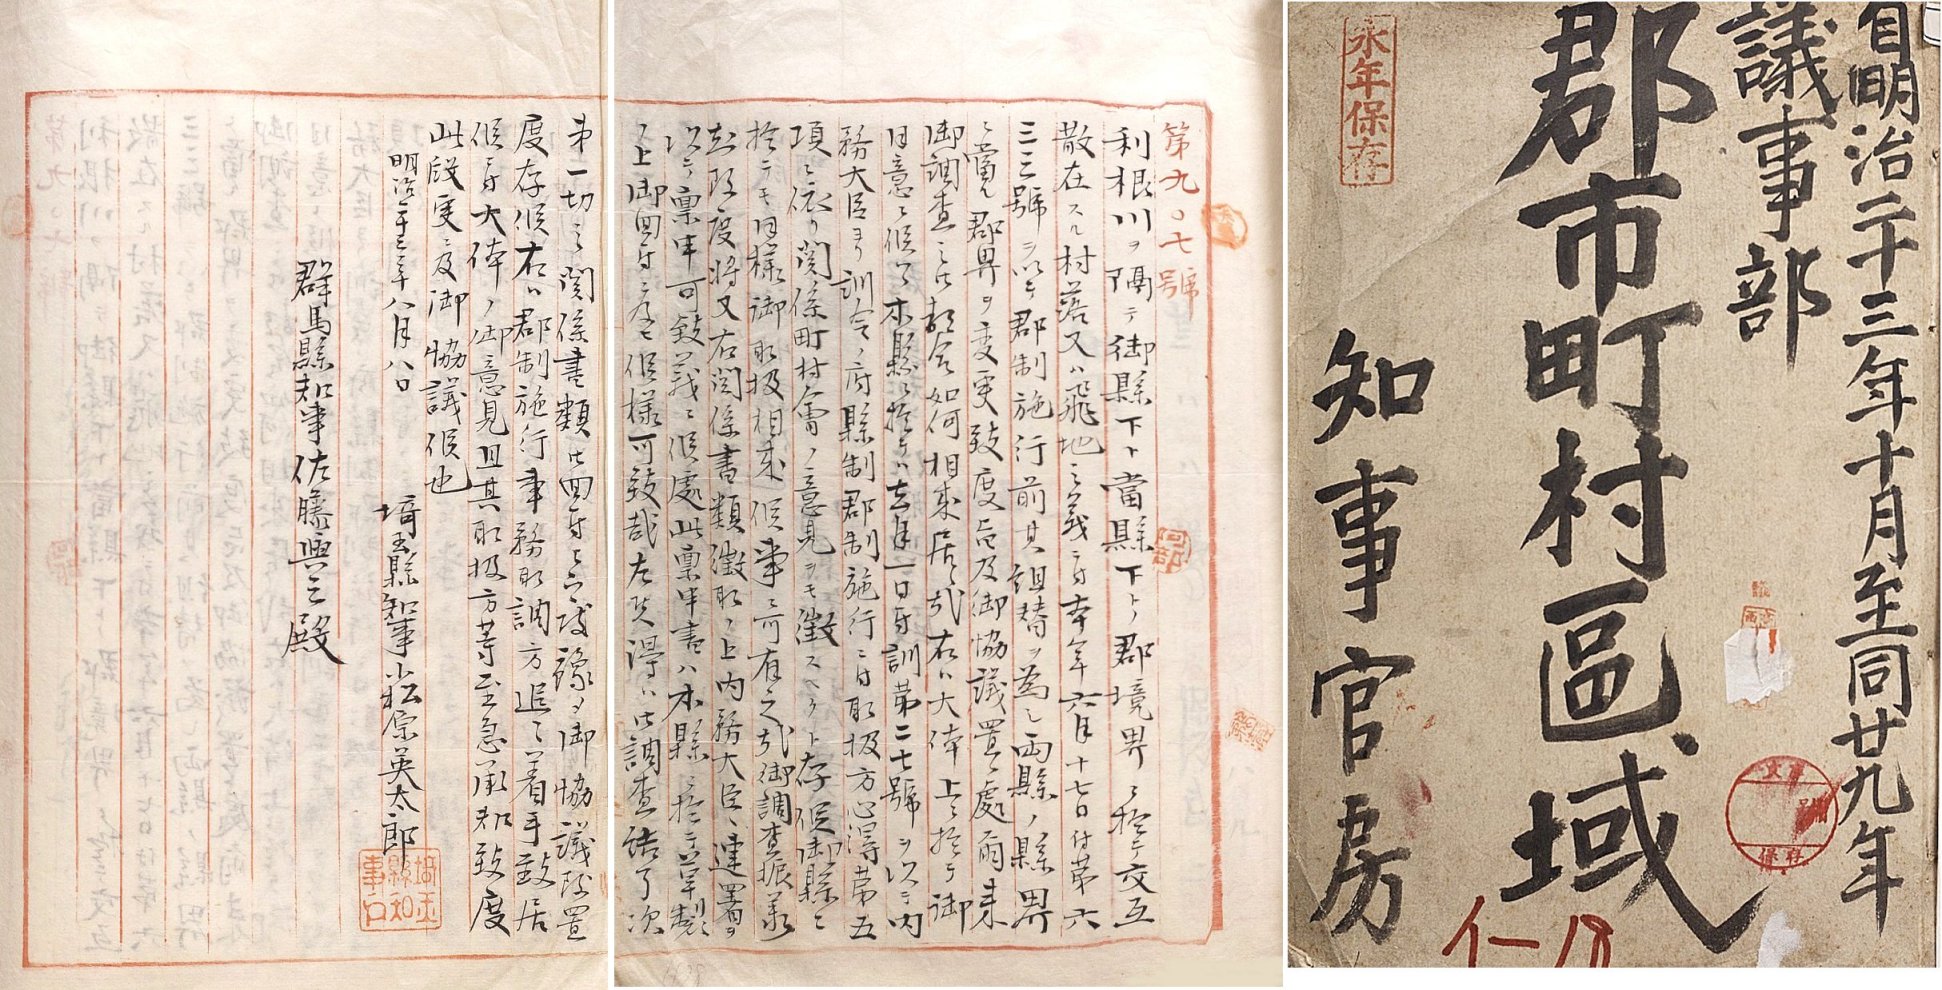 自明治二十三年十月至同廿九年
議事部
郡市町村區域
知事官房
永年保存
保存
第九〇七號
利根川ヲ隔テ御縣下ト當縣下トノ郡境界ニ於テ交互
散在スル村落又ハ飛地之義ニ付本年六月十七日付第六
三三號ヲ以テ郡制施行前其組替ヲ為シ両縣ノ縣界
ニ當ル郡界ヲ変更致度旨及御協議置候處爾来
御調査之都合如何相成居候哉右ハ大体上ニ於テ御
同意ニ候ハヽ本縣ニ於テハ去月一日付訓第二七號ヲ以テ内
務大臣ヨリ訓令ノ府縣制郡制施行ニ付取扱方心得第五
項ニ依リ関係町村會ノ意見ヲモ徴スヘクト存候御縣ニ
於テモ同様御取扱相成候事ニ可有之哉御調査振承
知致度将又右関係書類徴取ノ上内務大臣ヘ連署ヲ
以テ稟申可致義ニ候處此稟申書ハ本縣ニ於テ草製
之上御回付ニ及候様可致哉左候得ハ御調査結了次
第一切之関係書類御回付豫メ御協議致置
度存候右ハ郡制施行事務取調方追々着手致居
候ニ付大体ノ御意見且其取扱方等至急承知致度
此段更ニ及御協議候也
明治二十三年八月八日
埼玉縣知事小松原英太郎
埼玉縣知事
群馬縣知事佐藤與三殿